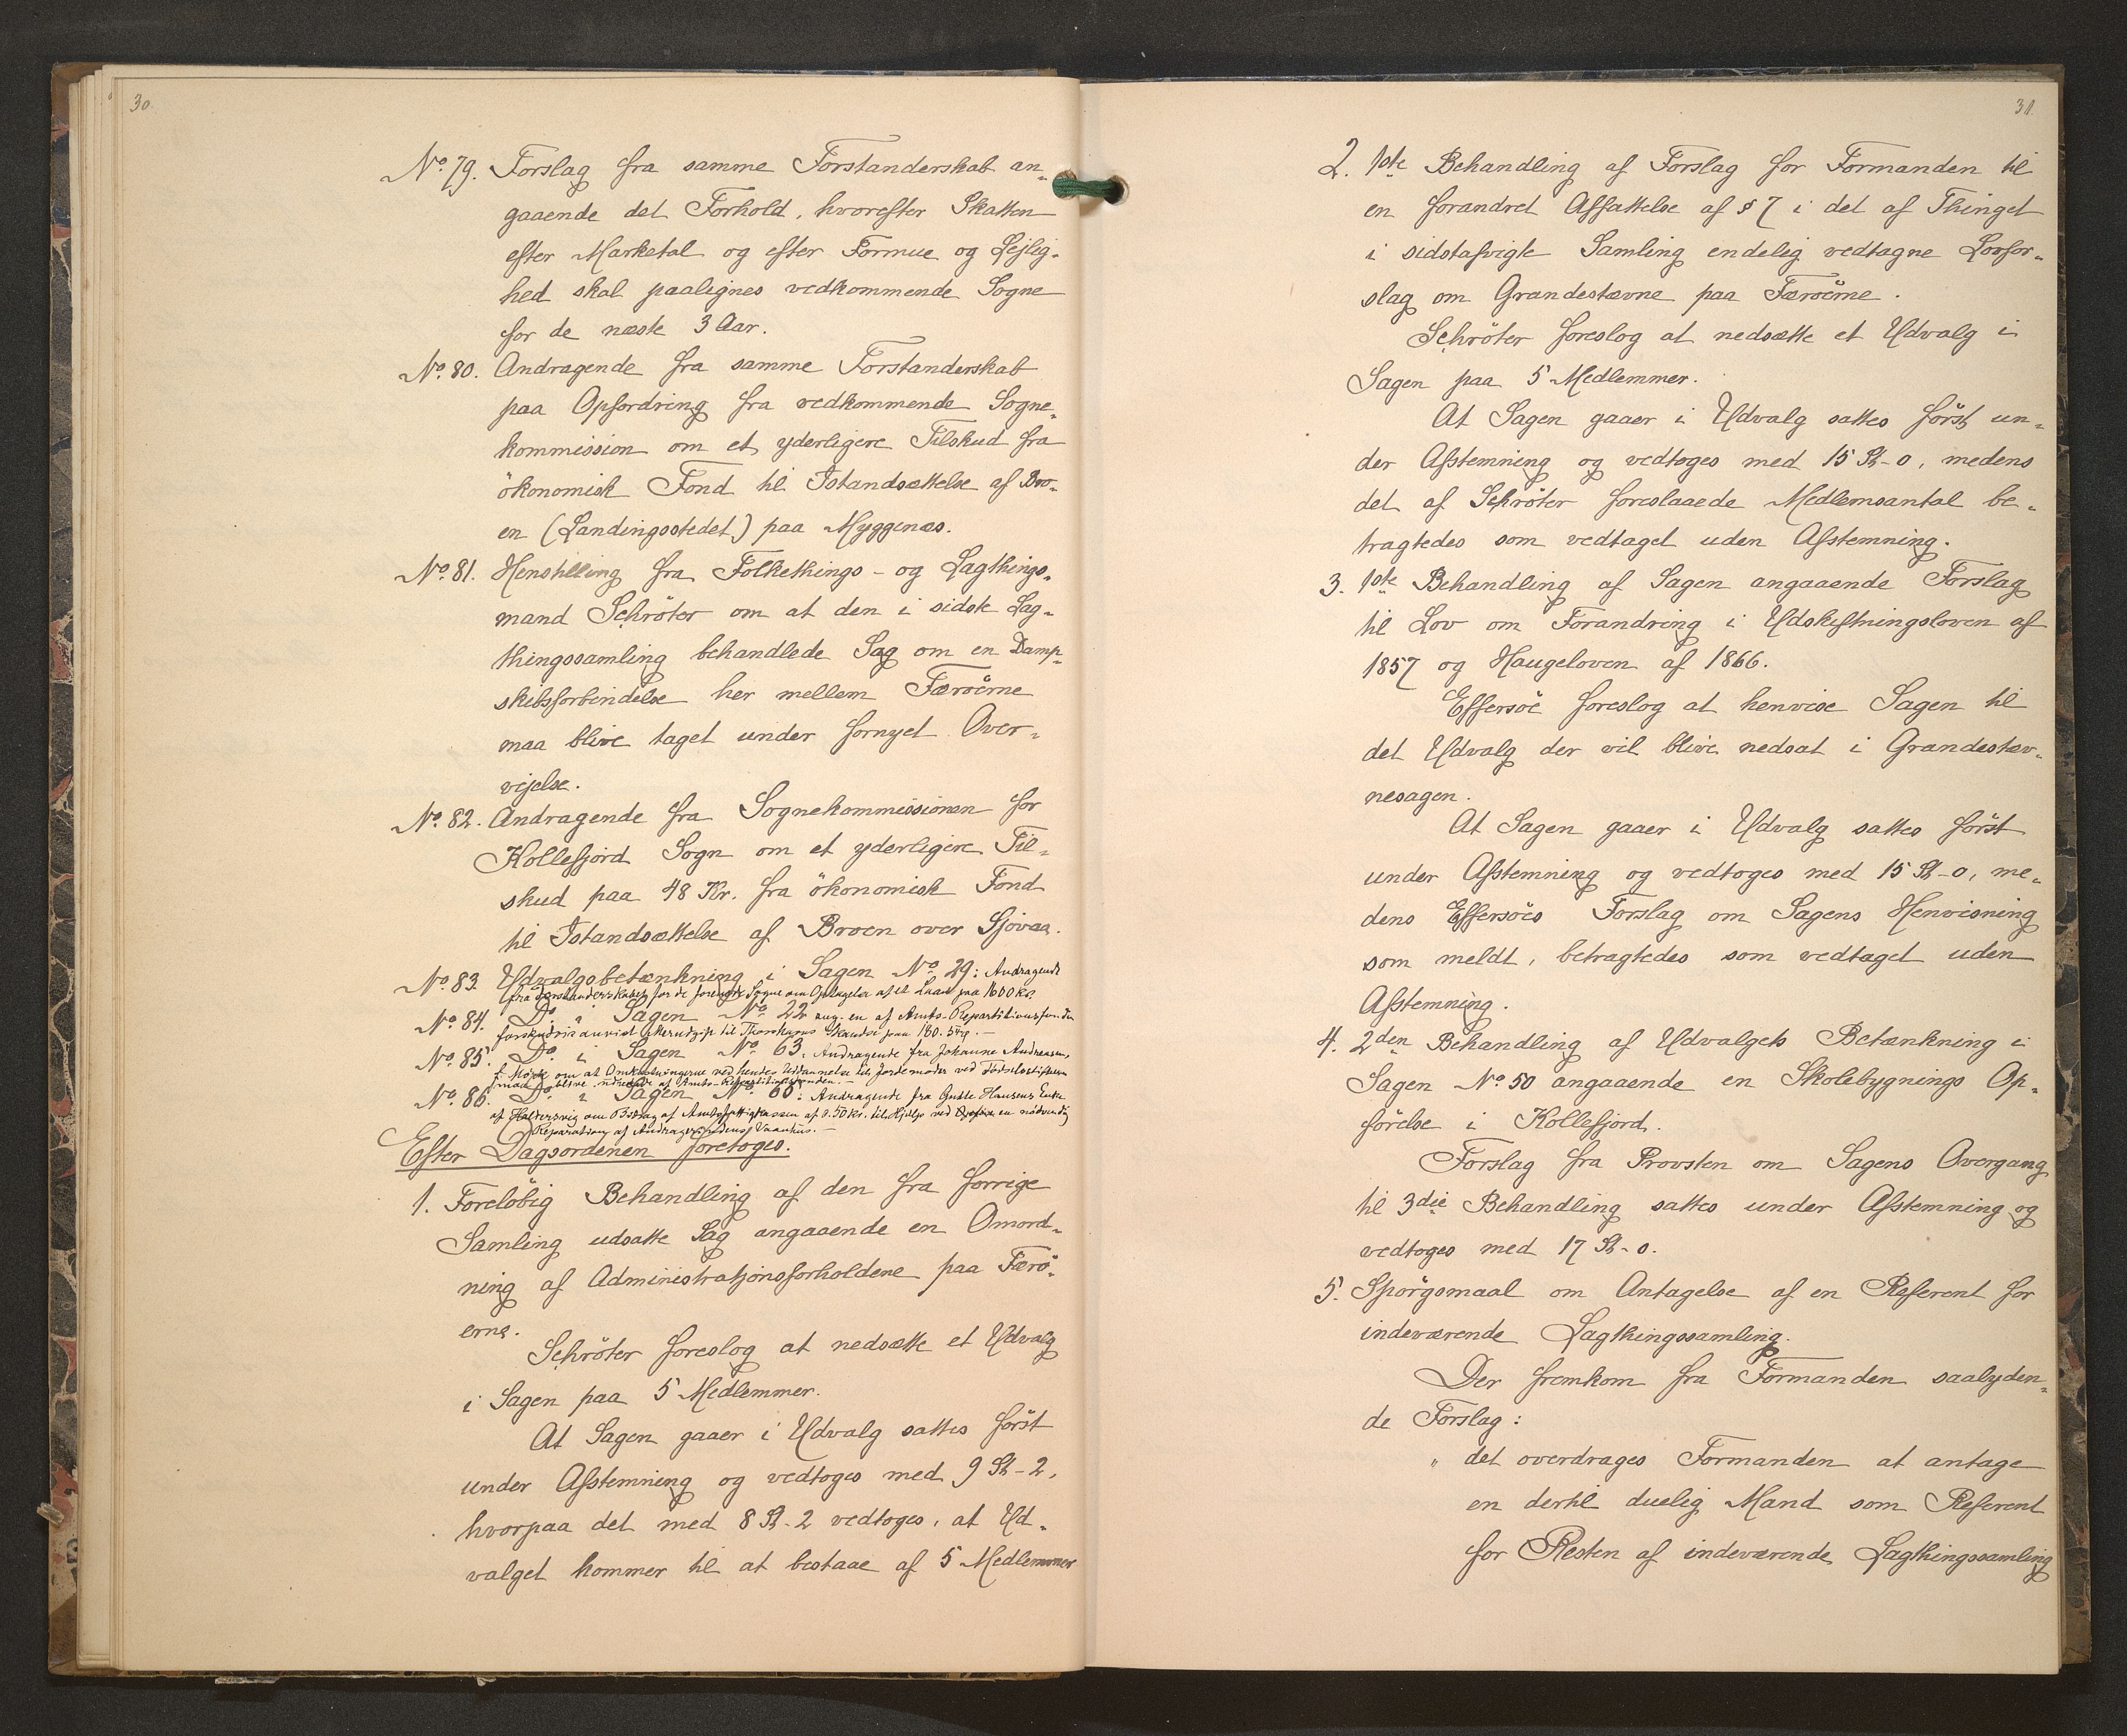 30.
No. 79. Forslag fra samme Forstanderskab an-
gaaende det Forhold, hvorefter Skatten
efter Marketal og efter Formue og Lejlig-
hed skal paalignes vedkommende Sogne
for de næste 3 Aar.
No. 80. Andragende fra samme Forstanderskab
paa Opfordring fra vedkommende Sogne-
kommission om et yderligere Tilskud fra
ökonomisk Fond til Istandsættelse af Bro-
en (Landingsstedet) paa Myggenæs.
No. 81. Henstilling fra Folkethings- og Lagthings-
mand Schröter om at den i sidste Lag-
thingssamling behandlede Sag om en Damp-
skibsforbindelse her mellem Færöerne
maa blive taget under fornyet Over-
vejelse.
No. 82. Andragende fra Sognekommissionen for
Kollefjord Sogn om et yderligere Til-
skud paa 48 Kr. fra ökonomisk Fond
til Istandsættelse af Broen over Sjovaa.
No. 83. Udvalgsbetænkning i Sagen No. 29: Andragende
fra Forstanderskabet for de forenede Sogne om Optagelse af et Laan paa 1600 Kr.
No. 84. Do. i Sagen No. 22 ang. en af Amts-Repartitionsfonden
forskudsvis anvist til Thorshavns Skandse paa 180. 50
No. 85. Do. i Sagen No. 63: Andragende fra Johanne Andreasen,
om at Omkostningerne ved hendes Uddannelse til Jordemoder ved Födselsstiftelsen
maa blive udredede af Amts-Repartitionsfonden. —
No. 86. Do. i Sagen No. 60: Andragende fra Gutte Hansens Enke
af Haldersvig om Bidrag af Amtsfattigkassen af 2.50 Kr. til Hjelp ved en nödvendig
Reparation af Andragerindens Vaanhus. —
Efter Dagsordenen foretoges.
1. Foreløbig Behandling af den fra forrige
Samling udsatte Sag angaaende en Omord-
ning af Administrationsforholdene paa Færö-
erne.
Schröter foreslog at nedsætte et Udvalg
i Sagen paa 5 Medlemmer.
At Sagen gaaer i Udvalg sattes først
under Afstemning og vedtoges med 9 St-2,
hvorpaa det med 8 St-2 vedtoges, at Ud-
valget kommer til at bestaae af 5 Medlemmer
31
2. 1ste Behandling af Forslag for Formanden til
en forandret Affattelse af § 7 i det af Thinget
i sidstafvigte Samling endelig vedtagne Lovfor-
slag om Grandestævne paa Færöerne.
Schröter foreslog at nedsætte et Udvalg i
Sagen paa 5 Medlemmer.
At Sagen gaaer i Udvalg sattes först un-
der Afstemning og vedtoges med 15 St-0, medens
det af Schröter foreslaaede Medlemsantal be-
tragtedes som vedtaget uden Afstemning.
3. 1ste Behandling af Sagen angaaende Forslag
til Lov om Forandring i Udskiftningsloven af
1857 og Haugeloven af 1866.
Effersöe foreslog at henvise Sagen til
det Udvalg der vil blive nedsat i Grandestæv-
nesagen.
At Sagen gaaer i Udvalg sattes först
under Afstemning og vedtoges med 15 St-0, me-
dens Effersöes Forslag om Sagens Henvisning
som meldt, betragtedes som vedtaget uden
Afstemning.
4. 2den Behandling af Udvalgets Betænkning i
Sagen No 50 angaaende en Skolebygnings Op-
förelse i Kollefjord.
Forslag fra Provsten om Sagens Overgang
til 3die Behandling sattes under Afstemning og
vedtoges med 17 St-0.
5. Spörgsmaal om Antagelse af en Referent for
indeværende Lagthingssamling.
Der fremkom fra Formanden saalyden-
de Forslag:
" det overdrages Formanden at antage
en dertil duelig Mand som Referent
for Resten af indeværende Lagthingssamling